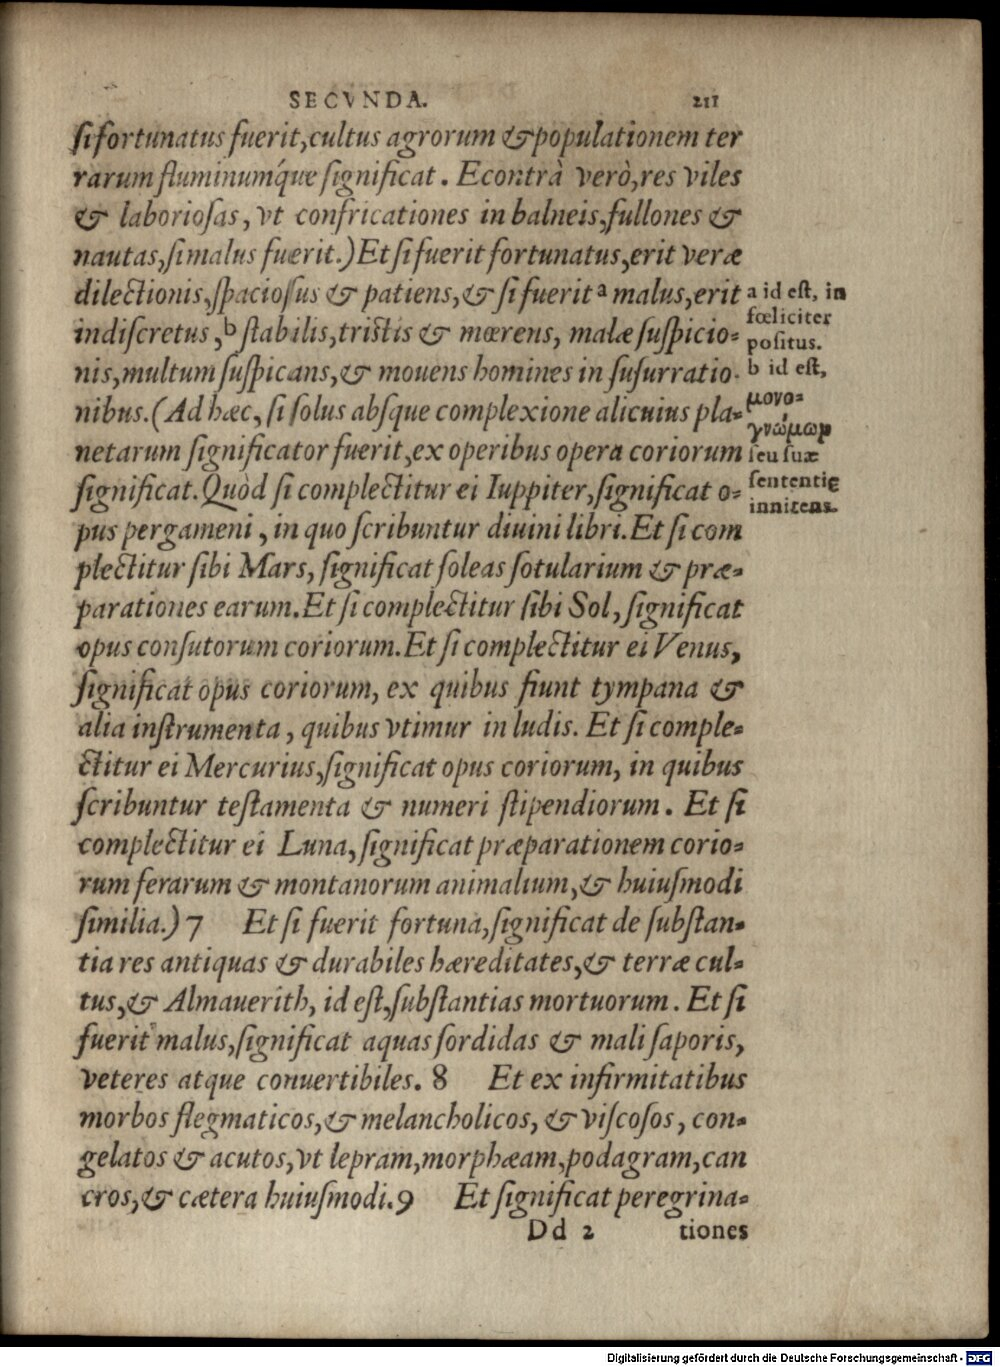 SECVNDA. 211
si fortunatus fuerit, cultus agrorum & populationem ter
rarum fluminumq́ue significat. Econtrà verò, res viles
& laboriosas, vt confricationes in balneis, fullones &
nautas, si malus fuerit.) Et si fuerit fortunatus, erit veræ
dilectionis, spaciosus & patiens, & si fuerit a malus, erit
indiscretus, b stabilis, tristis & mœrens, malæ suspicio-
nis, multum suspicans, & mouens homines in susurratio-
nibus. (Ad hæc, si solus absque complexione alicuius pla-
netarum significator fuerit, ex operibus opera coriorum
significat. Quòd si complectitur ei Iuppiter, significat o-
pus pergameni, in quo scribuntur diuini libri. Et si com
plectitur sibi Mars, significat soleas sotularium & præ-
parationes earum. Et si complectitur sibi Sol, significat
opus consutorum coriorum. Et si complectitur ei Venus,
significat opus coriorum, ex quibus fiunt tympana &
alia instrumenta, quibus vtimur in ludis. Et si comple-
ctitur ei Mercurius, significat opus coriorum, in quibus
scribuntur testamenta & numeri stipendiorum. Et si
complectitur ei Luna, significat præparationem corio-
rum ferarum & montanorum animalium, & huiusmodi
similia.) 7 Et si fuerit fortuna, significat de substan-
tia res antiquas & durabiles hæreditates, & terræ cul-
tus, & Almauerith, id est, substantias mortuorum. Et si
fuerit malus, significat aquas sordidas & mali saporis,
veteres atque conuertibiles. 8 Et ex infirmitatibus
morbos flegmaticos, & melancholicos, & viscosos, con-
gelatos & acutos, vt lepram, morphæam, podagram, can
cros, & cætera huiusmodi. 9 Et significat peregrina-
Dd 2 tiones
a id est, in
fœliciter
positus.
b id est,
μονο-
γνώμων
seu suæ
sententię
innitens.
Digitalisierung gefördert durch die Deutsche Forschungsgemeinschaft - DFG